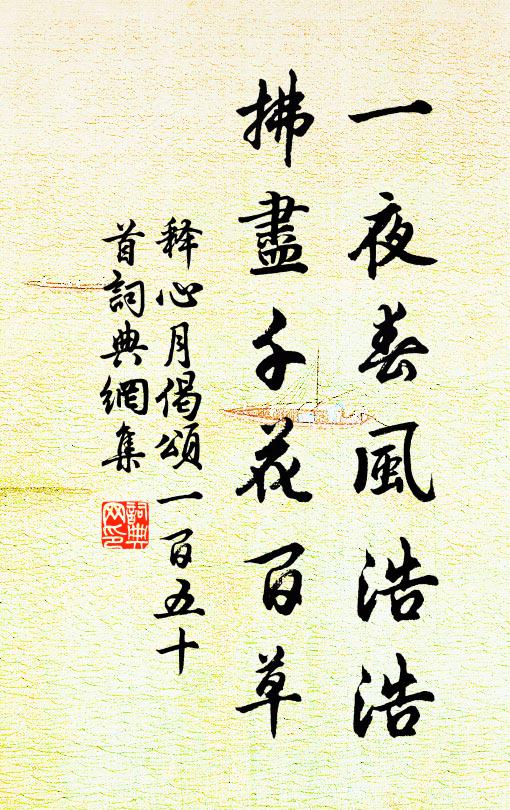 一夜春風浩浩
拂盡千花百草
释心月偈頌一百五十
首詞典網集
詞典
网印